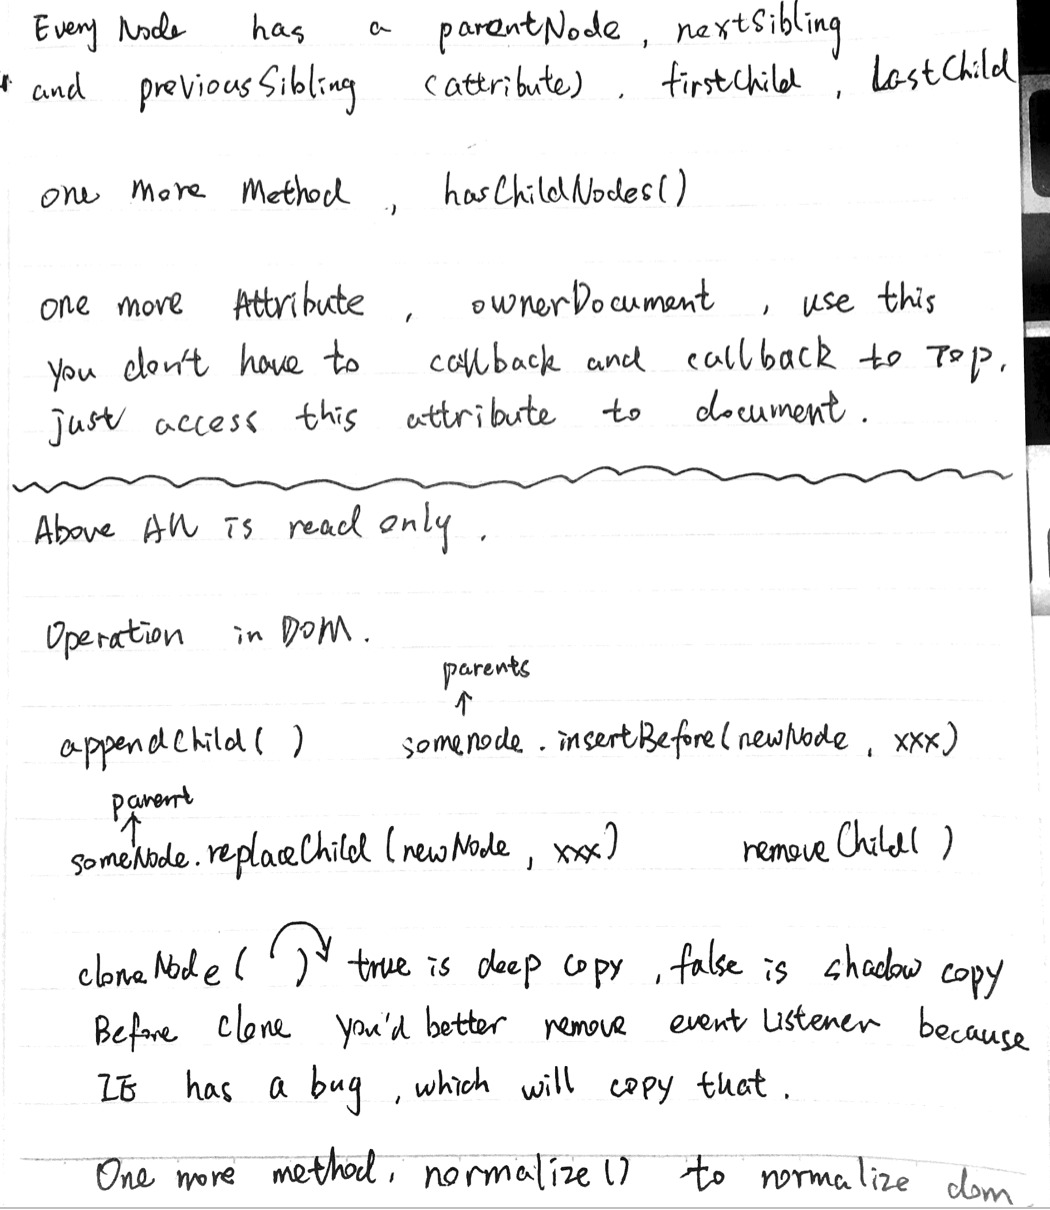 Every Node has a parentNode, nextSibling
and previousSibling (attribute), firstChild, LastChild
one more Method, hasChildNodes()
one more Attribute, ownerDocument, use this
you don't have to callback and callback to Top.
just access this attribute to document.
Above All is read only.
Operation in DOM.
parents
↑
appendChild( ) somenode.insertBefore(newNode, xxx)
parent
↑
someNode.replaceChild(newNode, xxx) removeChild( )
cloneNode( ) true is deep copy, false is shadow copy
Before clone you'd better remove event Listener because
IE has a bug, which will copy that.
One more method, normalize() to normalize dom